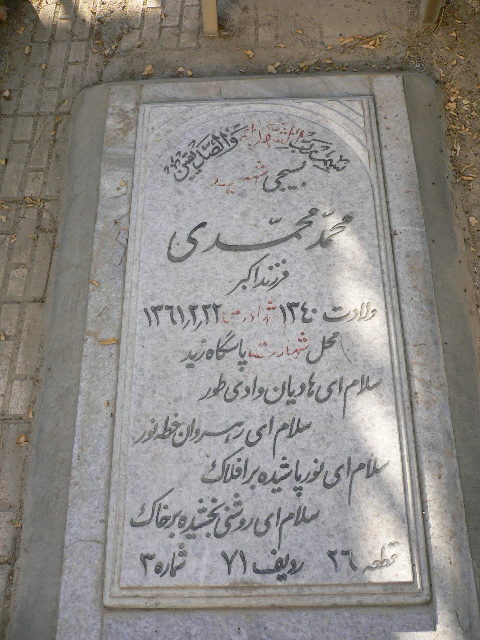 بسم رب الشهداء والصدیقین
بسیجی شهید
محمّد محمّدی
فرزند اکبر
ولادت ۱۳۴۰ شهادت ۱۳۶۱٫۲٫۲۲
محل شهادت پاسگاه زید
سلام ای هادیان وادی طور
سلام ای رهروان خطه نور
سلام ای نور پاشیده بر افلاک
سلام ای روشنی بخشیده بر خاک
قطعه ۲۶ ردیف ۷۱ شماره ۳